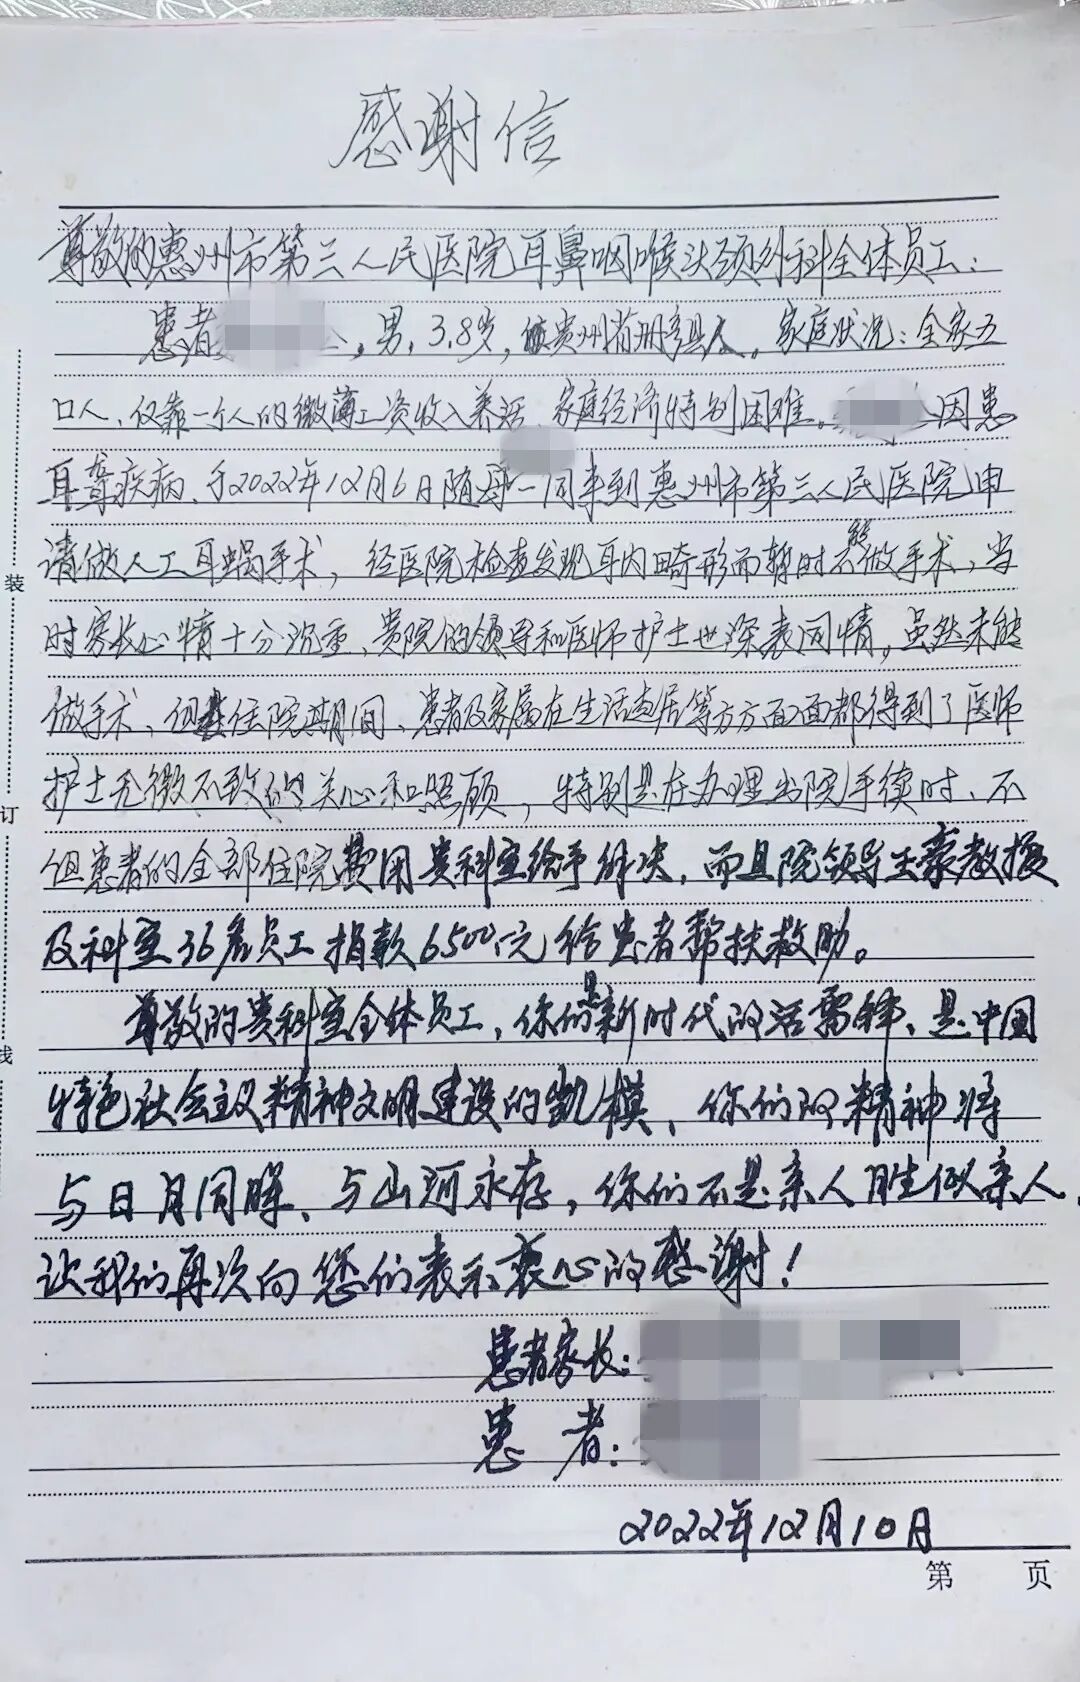 感谢信
尊敬的惠州市第三人民医院耳鼻咽喉头颈外科全体员工：
患者，男，3.8岁，贵州省册亨县人。家庭状况：全家五
口人、仅靠一个人的微薄工资收入养活、家庭经济特别困难。因患
耳聋疾病、于2022年12月6日随母一同来到惠州市第三人民医院申
请做人工耳蜗手术，经医院检查发现耳内畸形而暂时不能做手术，当
时家长心情十分沉重、贵院的领导和医师护士也深表同情。虽然未能
做手术、但住院期间、患者及家属在生活起居等方方面面都得到了医师
护士无微不致的关心和照顾，特别是在办理出院手续时、不
但患者的全部住院费用贵科室给予解决，而且院领导王豪教授
及科室36名员工捐款6500元给患者帮扶救助。
尊敬的贵科室全体员工，你们是新时代的活雷锋、是中国
特色社会主义精神文明建设的凯模、你们的精神将
与日月同晖、与山河永存，你们不是亲人胜似亲人，
让我们再次向您们表示衷心的感谢！
患者家长：
患者：
2022年12月10日
第 页
装
订
线